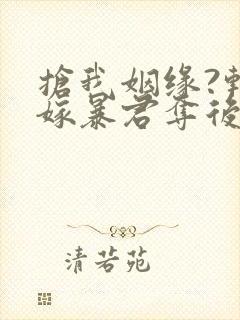 搶我姻缘?
嫁暴君夺後
清若苑